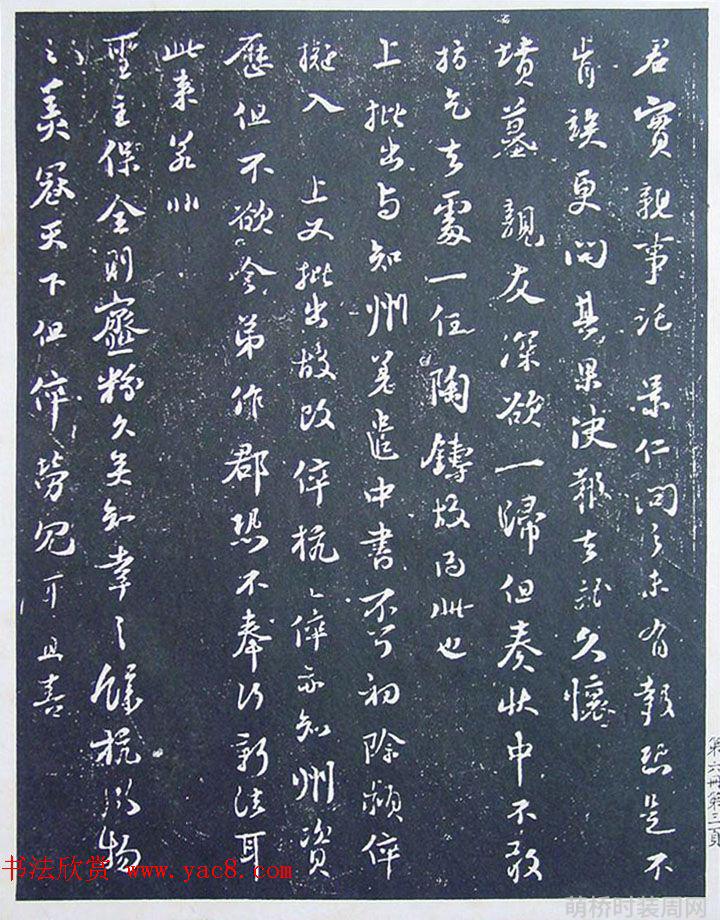 君實親事託 景仁問之未有報恐是不
肯候更問其果決報去訖久懷
墳墓 親友深欲一歸但奏狀中不敢
指乞去處一任陶鑄故得此也
上批出与知州差遣中書不可初除潁倅
擬入 上又批出故改倅杭〻倅亦知州資
歷但不欲令弟作郡恐不奉行新法耳
此來若非
聖主保全則虀粉久矣知幸〻餘杭風物
之美冠天下但倅勞冗耳且喜
第六冊第三頁
书法欣赏 www.yac8.com
萌桥时装周网